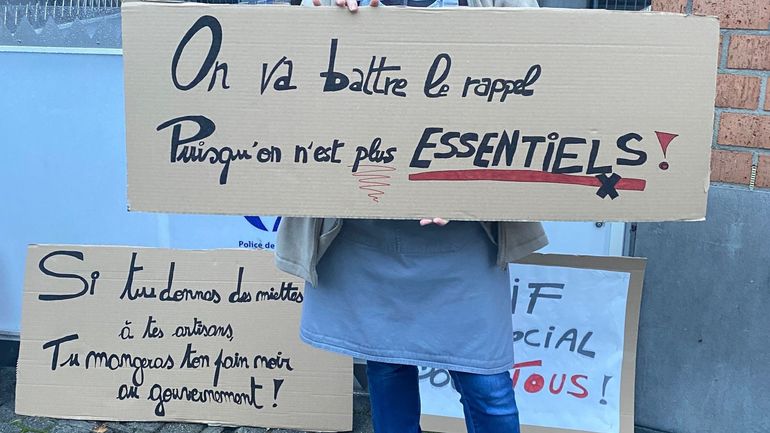 On va battre le rappel
Puisqu'on n'est plus ESSENTIELS !
Police de
Si tu donnes des miettes
à tes artisans,
Tu mangeras ton pain noir
au gouvernement !
IF
OCIAL
TOUS !